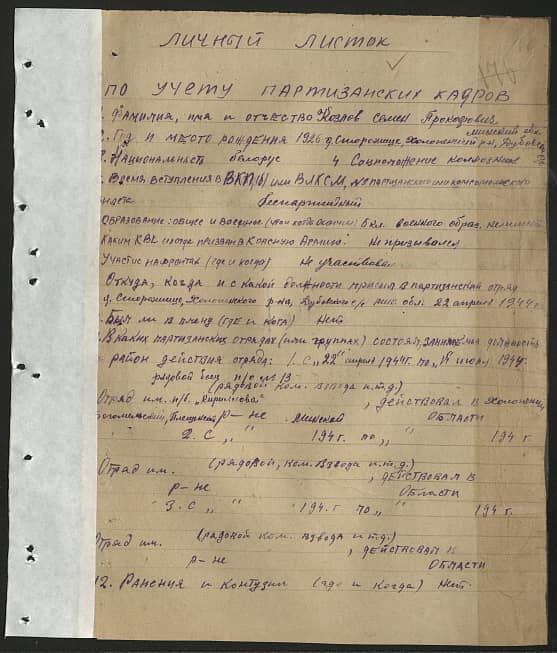 ЛИЧНЫЙ ЛИСТОК
176
ПО УЧЕТУ ПАРТИЗАНСКИХ КАДРОВ
. ФАМИЛИЯ, ИМА И ОТЧЕСТВО Козлов Семен Прокофович
минской обл.
ГОД И МЕСТО РОЖДЕНИЯ 1926 д.
НАЦИОНАЛЬНАСТ белорус 4 СОЦПОЛОЖЕНИЕ колхозник
ВРЕМЯ ВСТУПЛЕНИЯ В ВКП(б) ИЛИ ВЛКСМ, № ПАРТИЗАНСКОГО ИЛИ КОМСОМОЛЬСКОГО
билета беспартийный
ОБРАЗОВАНИЕ: ОБЩЕЕ И ВОЕННОЕ 6 кл. военного образ. не имеет
КАКИМ РВК И КОГДА ПРИЗВАН В КРАСНУЮ АРМИЮ: Не призывался
УЧАСТИЕ НА ФРОНТАХ (ГДЕ И КОГДА) Не участвовал
ОТКУДА, КОГДА И С КАКОЙ ДОЛЖНОСТИ ПРИБЫЛ В ПАРТИЗАНСКИЙ ОТРЯД
р-на, с/с мин. обл. 22 апреля 1944 г.
БЫЛ ЛИ В ПЛЕНУ (ГДЕ И КОГА) Нет
В КАКИХ ПАРТИЗАНСКИХ ОТРЯДАХ (ИЛИ ГРУППАХ) СОСТОЯЛ, ЗАНИМАЕМАЯ ДОЛЖНОСТЬ
РАЙОН ДЕЙСТВИЯ ОТРЯДА: 1. С „22" апреля 1944г. ПО „1" июля 1944г.
рядовой боец п/о № 13
(РЯДОВОЙ КОМ. ВЗВОДА И.Т.Д.)
ОТРЯД ИМ. п/б. „Кирилова" , ДЕЙСТВОВАЛ В
Плещеницкий Р-НЕ Минской ОБЛАСТИ
2. С „ " 194 г. ПО „ " 194 г
ОТРЯД ИМ. (РЯДОВОЙ, КОМ. ВЗВОДА И.Т.Д.)
, ДЕЙСТВОВАЛ В
Р-НЕ ОБЛАСТИ
3. С „ " 194. Г ПО „ " 194 г.
ОТРЯД ИМ. (РЯДОВОЙ КОМ. ВЗВОДА И.Т.Д.)
, ДЕЙСТВОВАЛ В
Р-НЕ ОБЛАСТИ
12. РАНЕНИЯ И КОНТУЗИИ (ГДЕ И КОГДА) Нет.